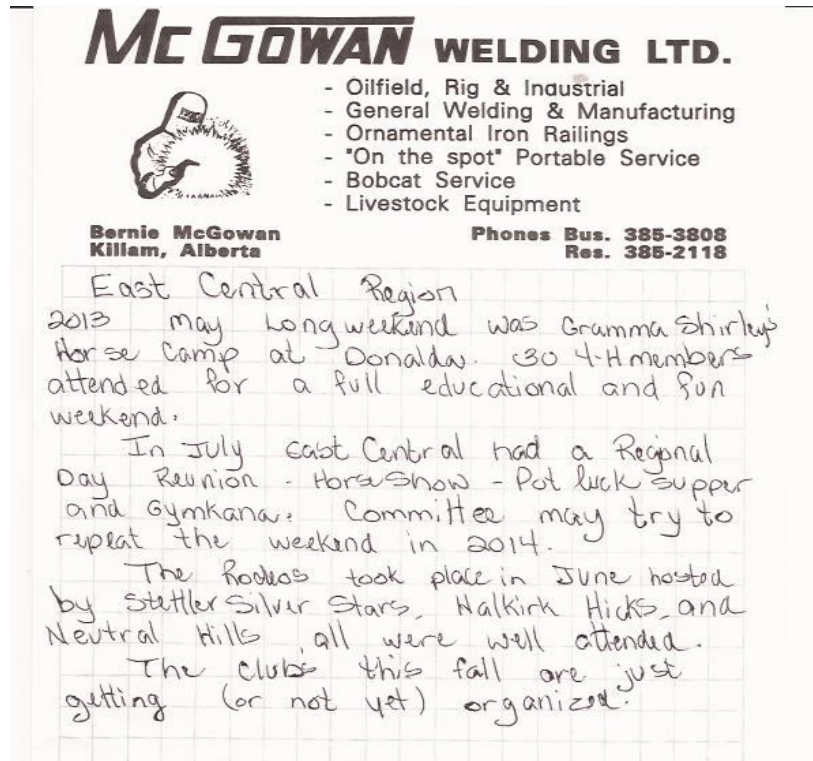 McGOWAN WELDING LTD.
- Oilfield, Rig & Industrial
- General Welding & Manufacturing
- Ornamental Iron Railings
- "On the spot" Portable Service
- Bobcat Service
- Livestock Equipment
Bernie McGowan
Killam, Alberta
Phones Bus. 385-3808
Res. 385-2118
East Central Region
2013 May Long weekend was Gramma Shirley's
Horse Camp at Donalda. 30 4-H members
attended for a full educational and fun
weekend.
In July East Central had a Regional
Day Reunion - Horse Show - Pot luck supper
and Gymkana. Committee may try to
repeat the weekend in 2014.
The Rodeos took place in June hosted
by Stettler Silver Stars, Halkirk Hicks, and
Neutral Hills all were well attended.
The Clubs this fall are just
getting (or not yet) organized.